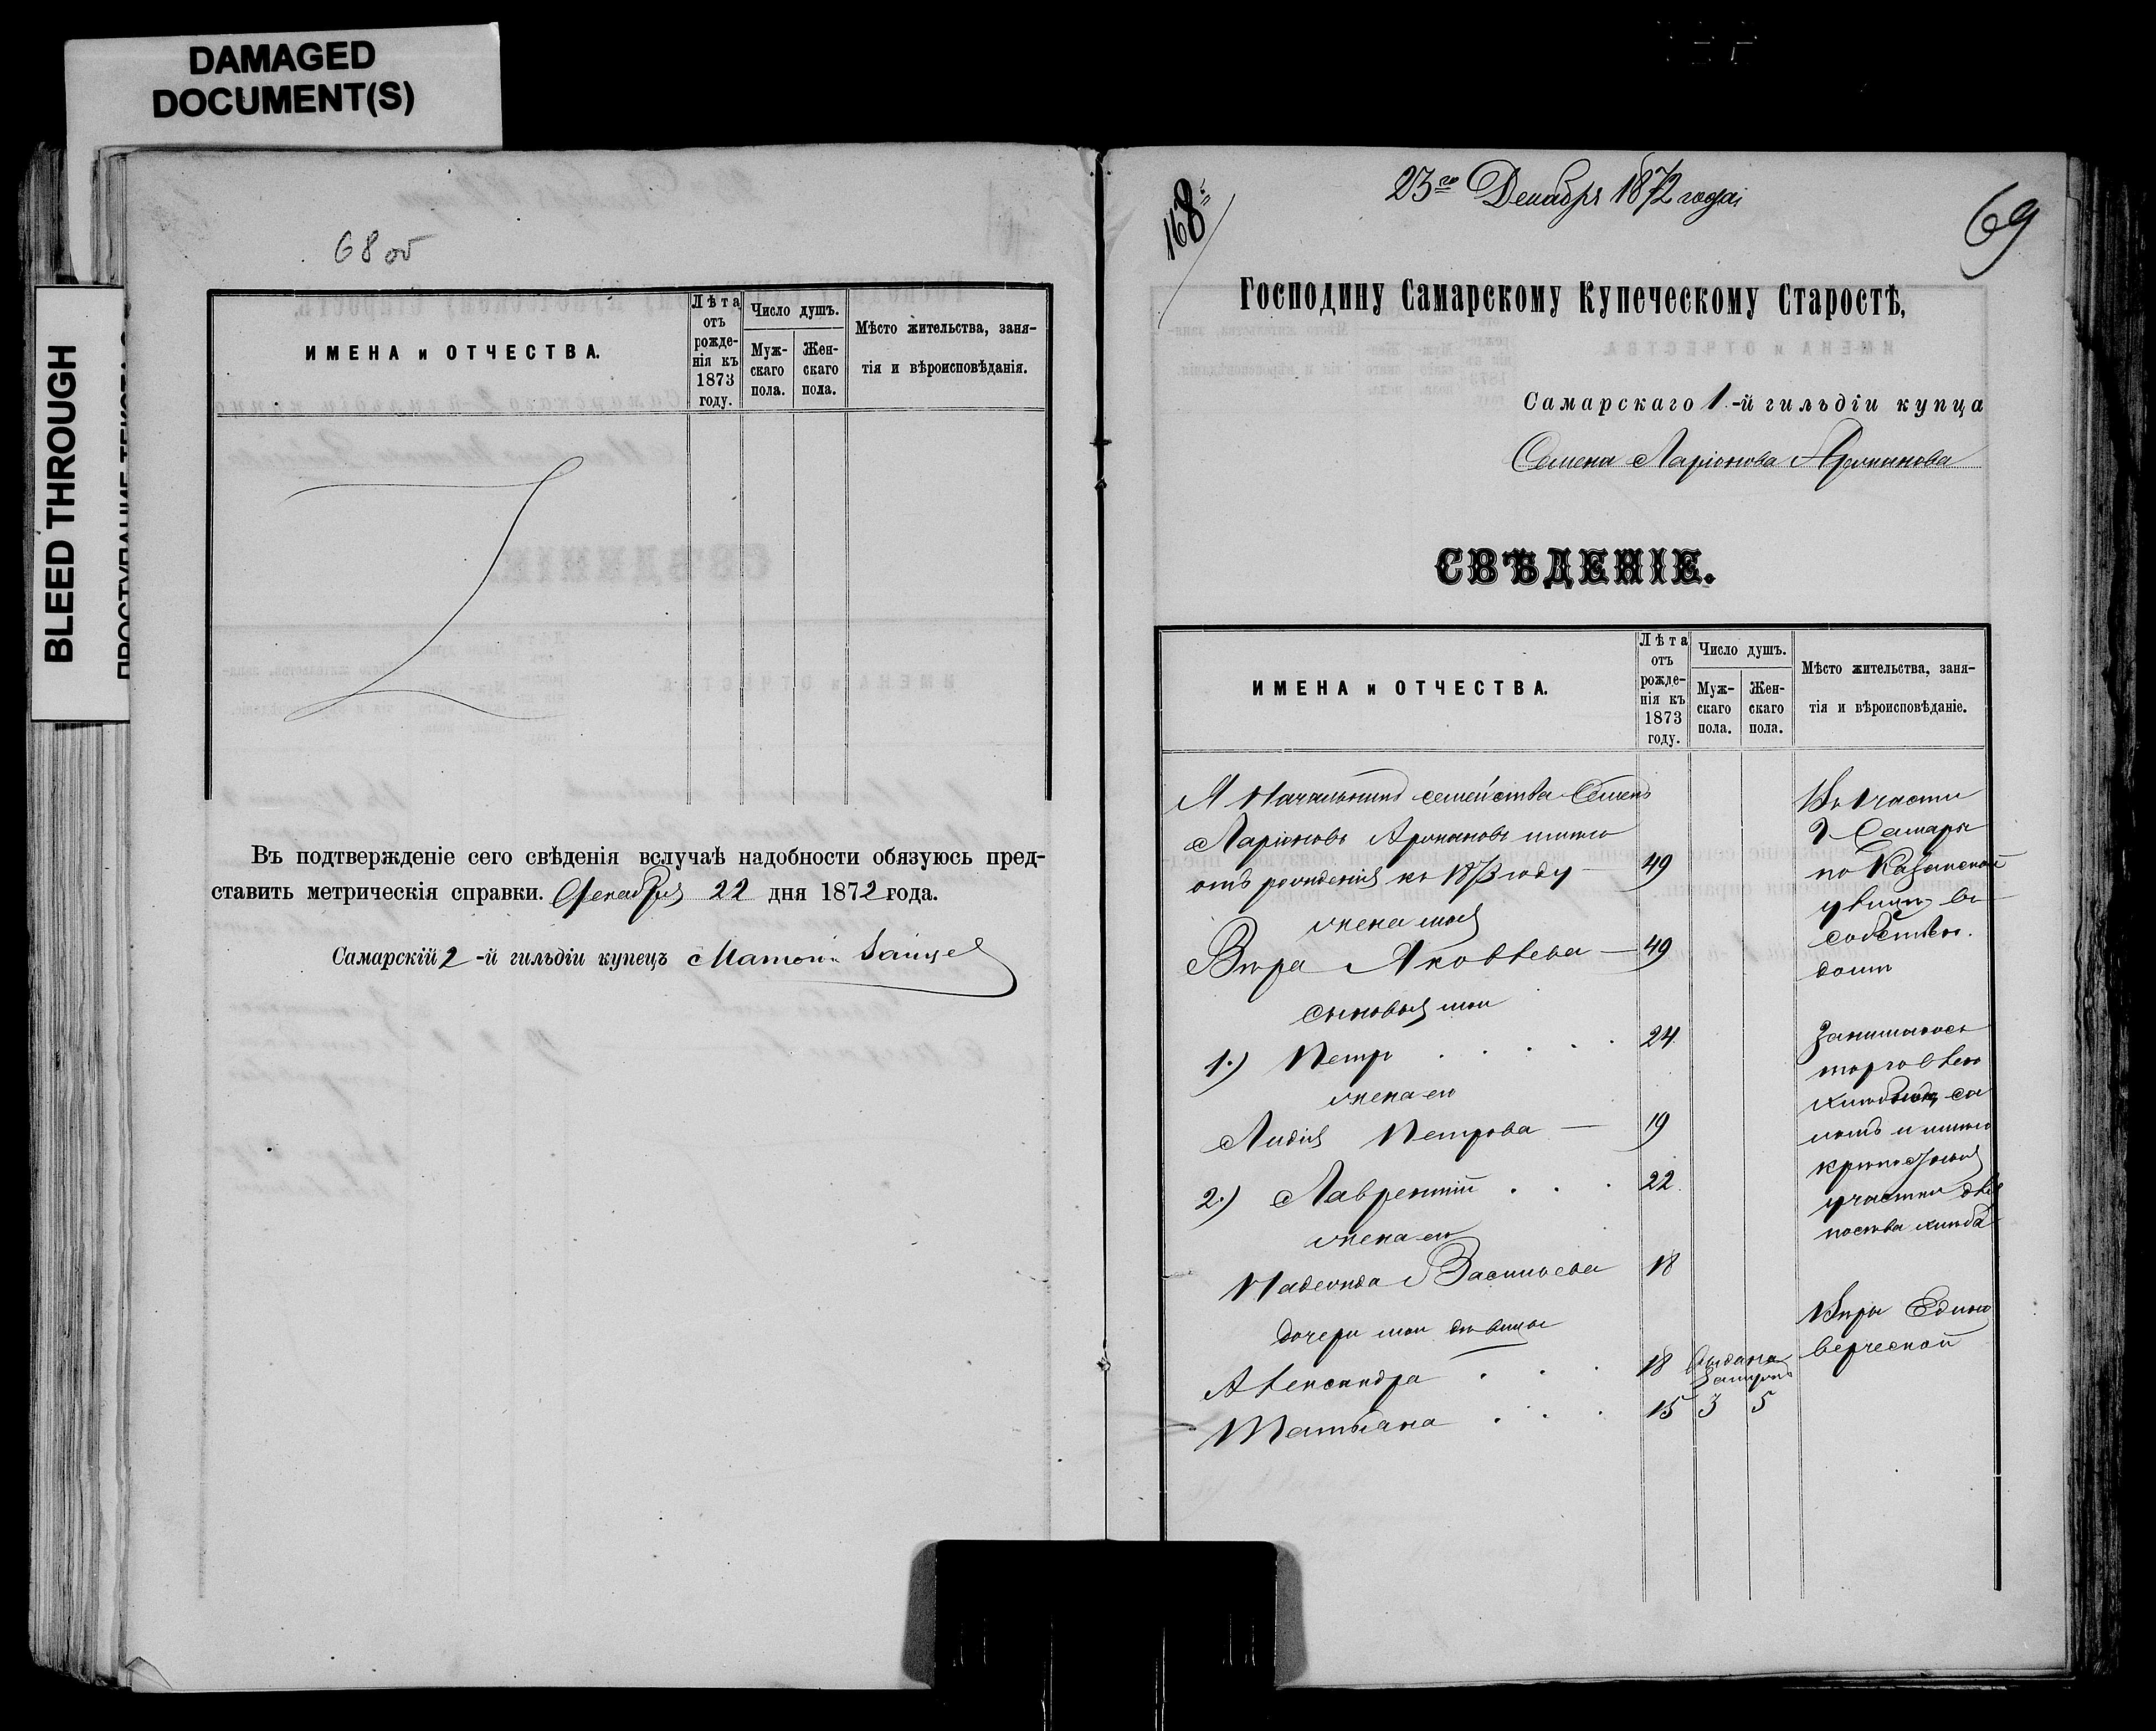 DAMAGED
DOCUMENT(S)
BLEED THROUGH
68 об
ИМЕНА и ОТЧЕСТВА.
Лѣта
отъ
рожде-
нія къ
1873
году.
Число душъ.
Муж-
скаго
пола.
Жен-
скаго
пола.
Мѣсто жительства, заня-
тія и вѣроисповѣданія.
Въ подтвержденіе сего свѣденія вслучаѣ надобности обязуюсь пред-
ставить метрическія справки. Декабря 22 дня 1872 года.
Самарскій 2-й гильдіи купецъ
168
23го Декабря 1872 года
69
Господину Самарскому Купеческому Старостѣ,
Самарскаго 1-й гильдіи купца
Семена Ларіонова Аржанова
СВѢДЕНІЕ.
ИМЕНА и ОТЧЕСТВА.
Лѣта
отъ
рожде-
нія къ
1873
году.
Число душъ.
Муж-
скаго
пола.
Жен-
скаго
пола.
Мѣсто жительства, заня-
тія и вѣроисповѣданіе.
Я Начальникъ семейства Семенъ
Ларіоновъ Аржановъ имѣю
отъ рожденія къ 1873 году — 49
жена моя
Вѣра Яковлева — 49
сыновья мои
1.) Петръ . . . . . 24
жена его
Лидія Петрова — 19
2.) Лаврентій . . . 22
жена его
Надежда Васильева 18
дочери мои дѣвицы
Александра . . . 18 Выдана
замужъ
Татьяна . . . 15 3 5
Въ 1 части
г. Самары
по Казанской
улицѣ въ
собствен.
домѣ
Занимаюсь
торговлею
хлѣбомъ, са
ломъ и имѣю
участки для
посѣва хлѣба
Вѣры Едино
верческой